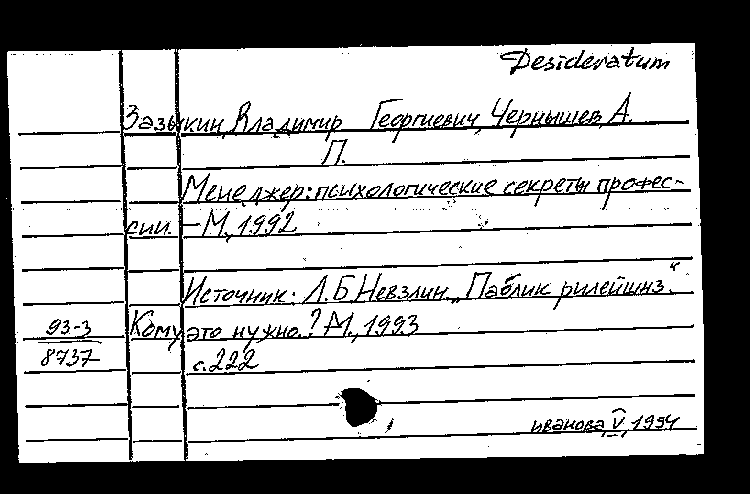 Desideratum
Зазыкин, Владимир Георгиевич, Чернышев, А.
П.
Менеджер: психологические секреты профес-
сии. — М., 1992
Источник: Л.Б Невзлин „Паблик рилейшнз."
93-3 Кому это нужно.? М., 1993
8737 с.222
иванова, V, 1994